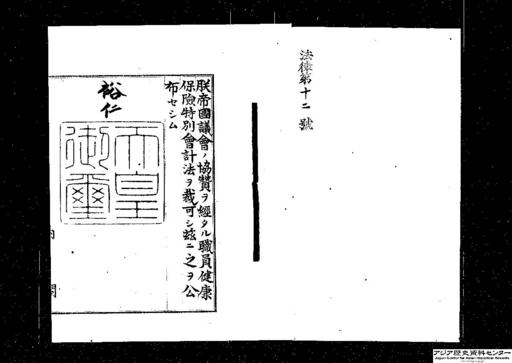 法律第十二號
朕帝國議會ノ協贊ヲ經タル職員健康
保險特別會計法ヲ裁可シ玆ニ之ヲ公
布セシム
裕仁
天皇
御璽
內閣
アジア歴史資料センター
Japan Center for Asian Historical Records